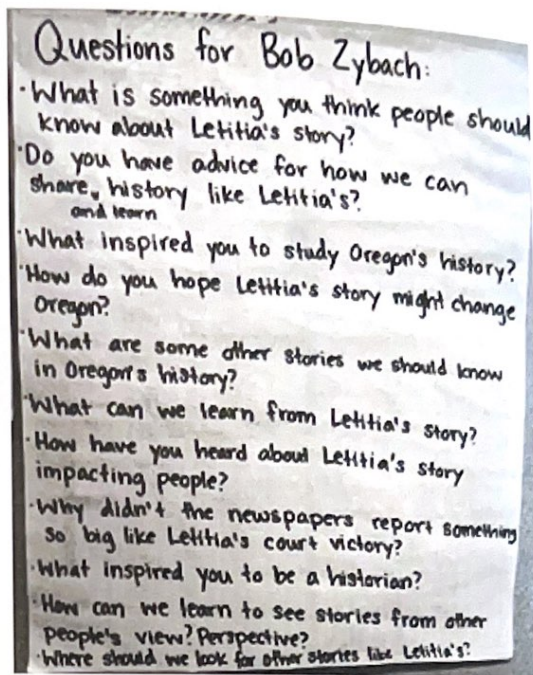 Questions for Bob Zybach:
·What is something you think people should
know about Letitia's story?
·Do you have advice for how we can
share, history like Letitia's?
and learn
·What inspired you to study Oregon's history?
·How do you hope Letitia's story might change
Oregon?
·What are some other stories we should know
in Oregon's history?
·What can we learn from Letitia's story?
·How have you heard about Letitia's story
impacting people?
·Why didn't the newspapers report something
so big like Letitia's court victory?
·What inspired you to be a historian?
·How can we learn to see stories from other
people's view? Perspective?
·Where should we look for other stories like Letitia's?